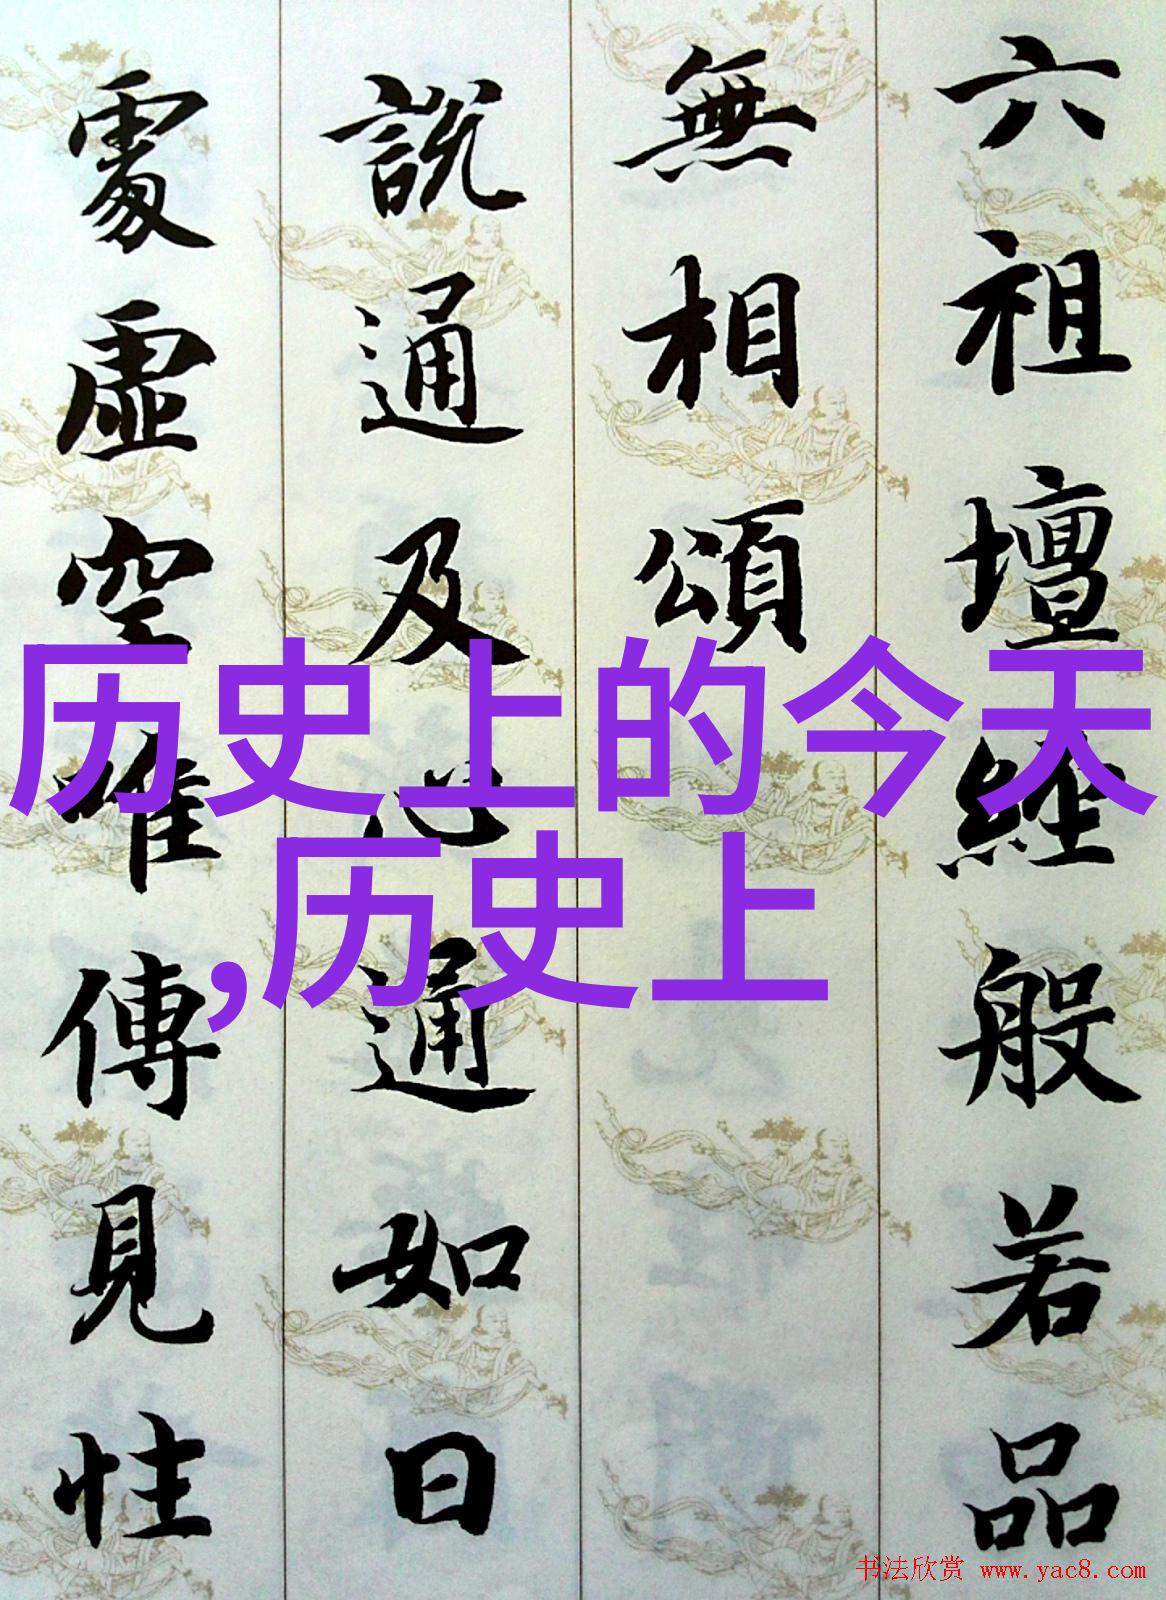 六祖壇經般若品
無相頌
說通及心通如日
處虛空唯傳見性
历史上的今天
,历史上
书法欣赏 www.yac8.com